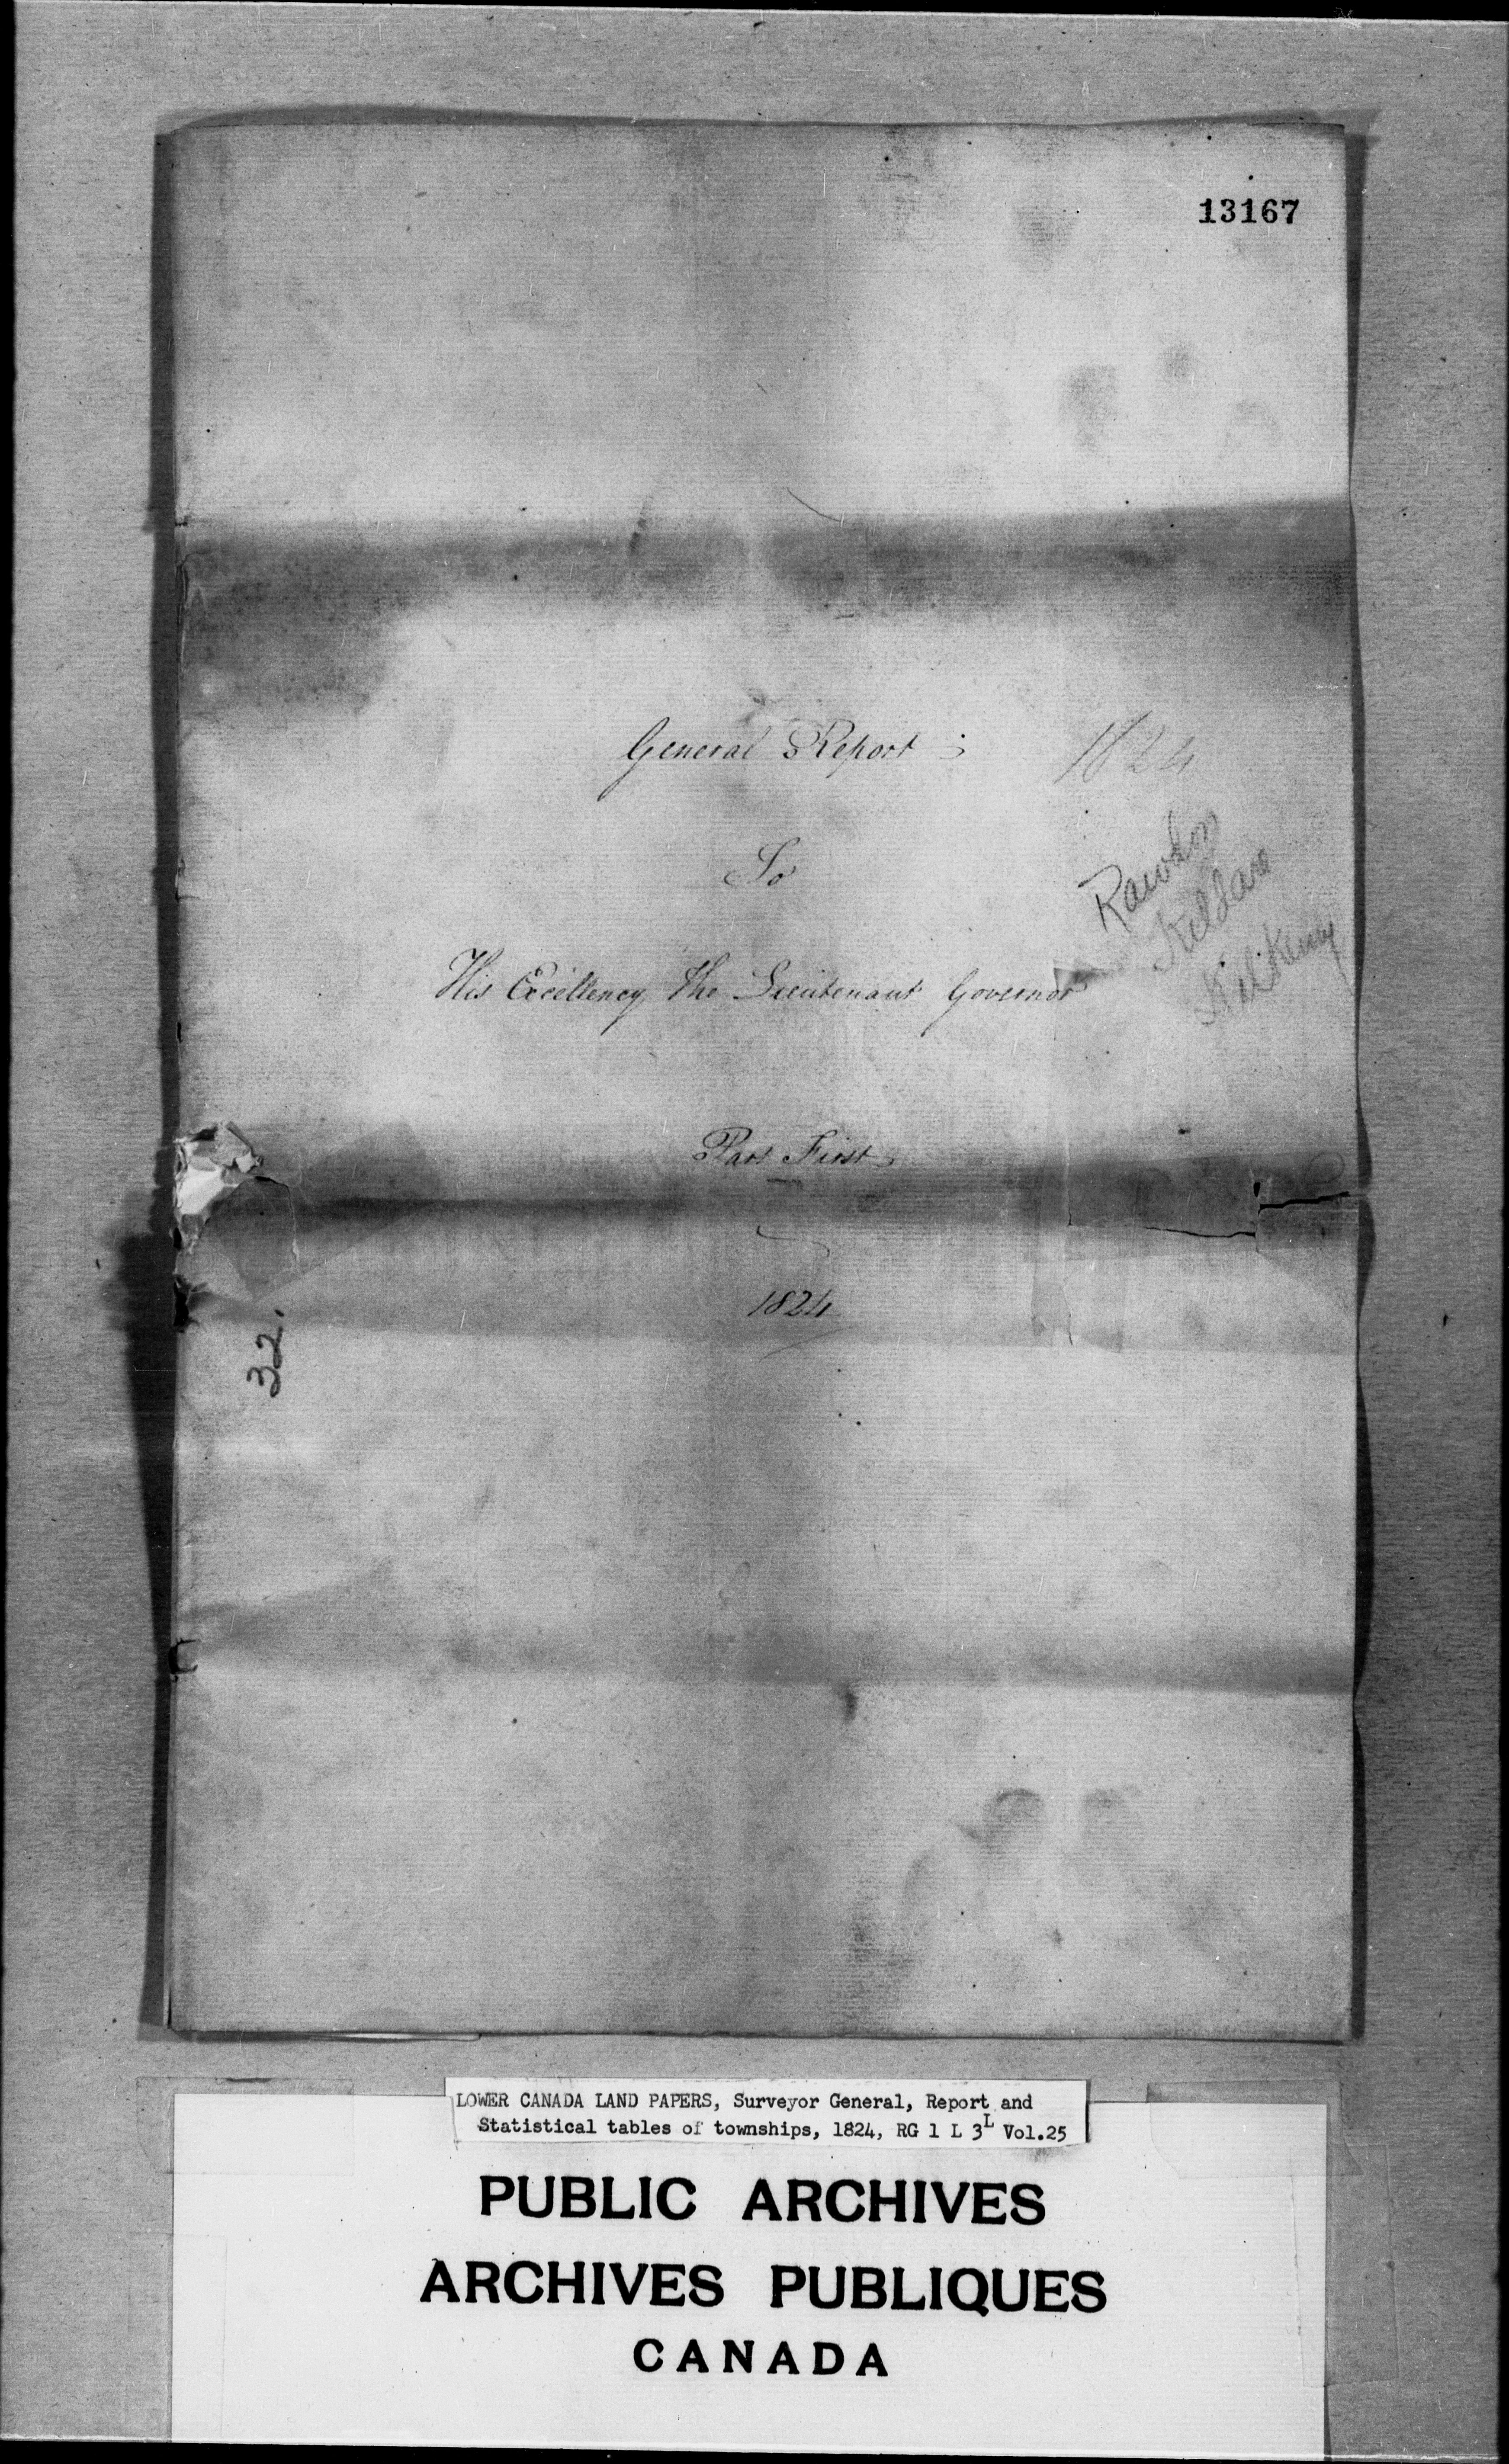 13167
General Report
1824
To
Rawdon
Kildare
Kilkenny
His Excellency The Lieutenant Governor
Part First
1824
32.
LOWER CANADA LAND PAPERS, Surveyor General, Report and
Statistical tables of townships, 1824, RG 1 L 3L Vol.25
PUBLIC ARCHIVES
ARCHIVES PUBLIQUES
CANADA